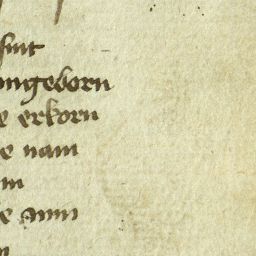 sint
ungeborn
e erkorn
e nam
m
e ann